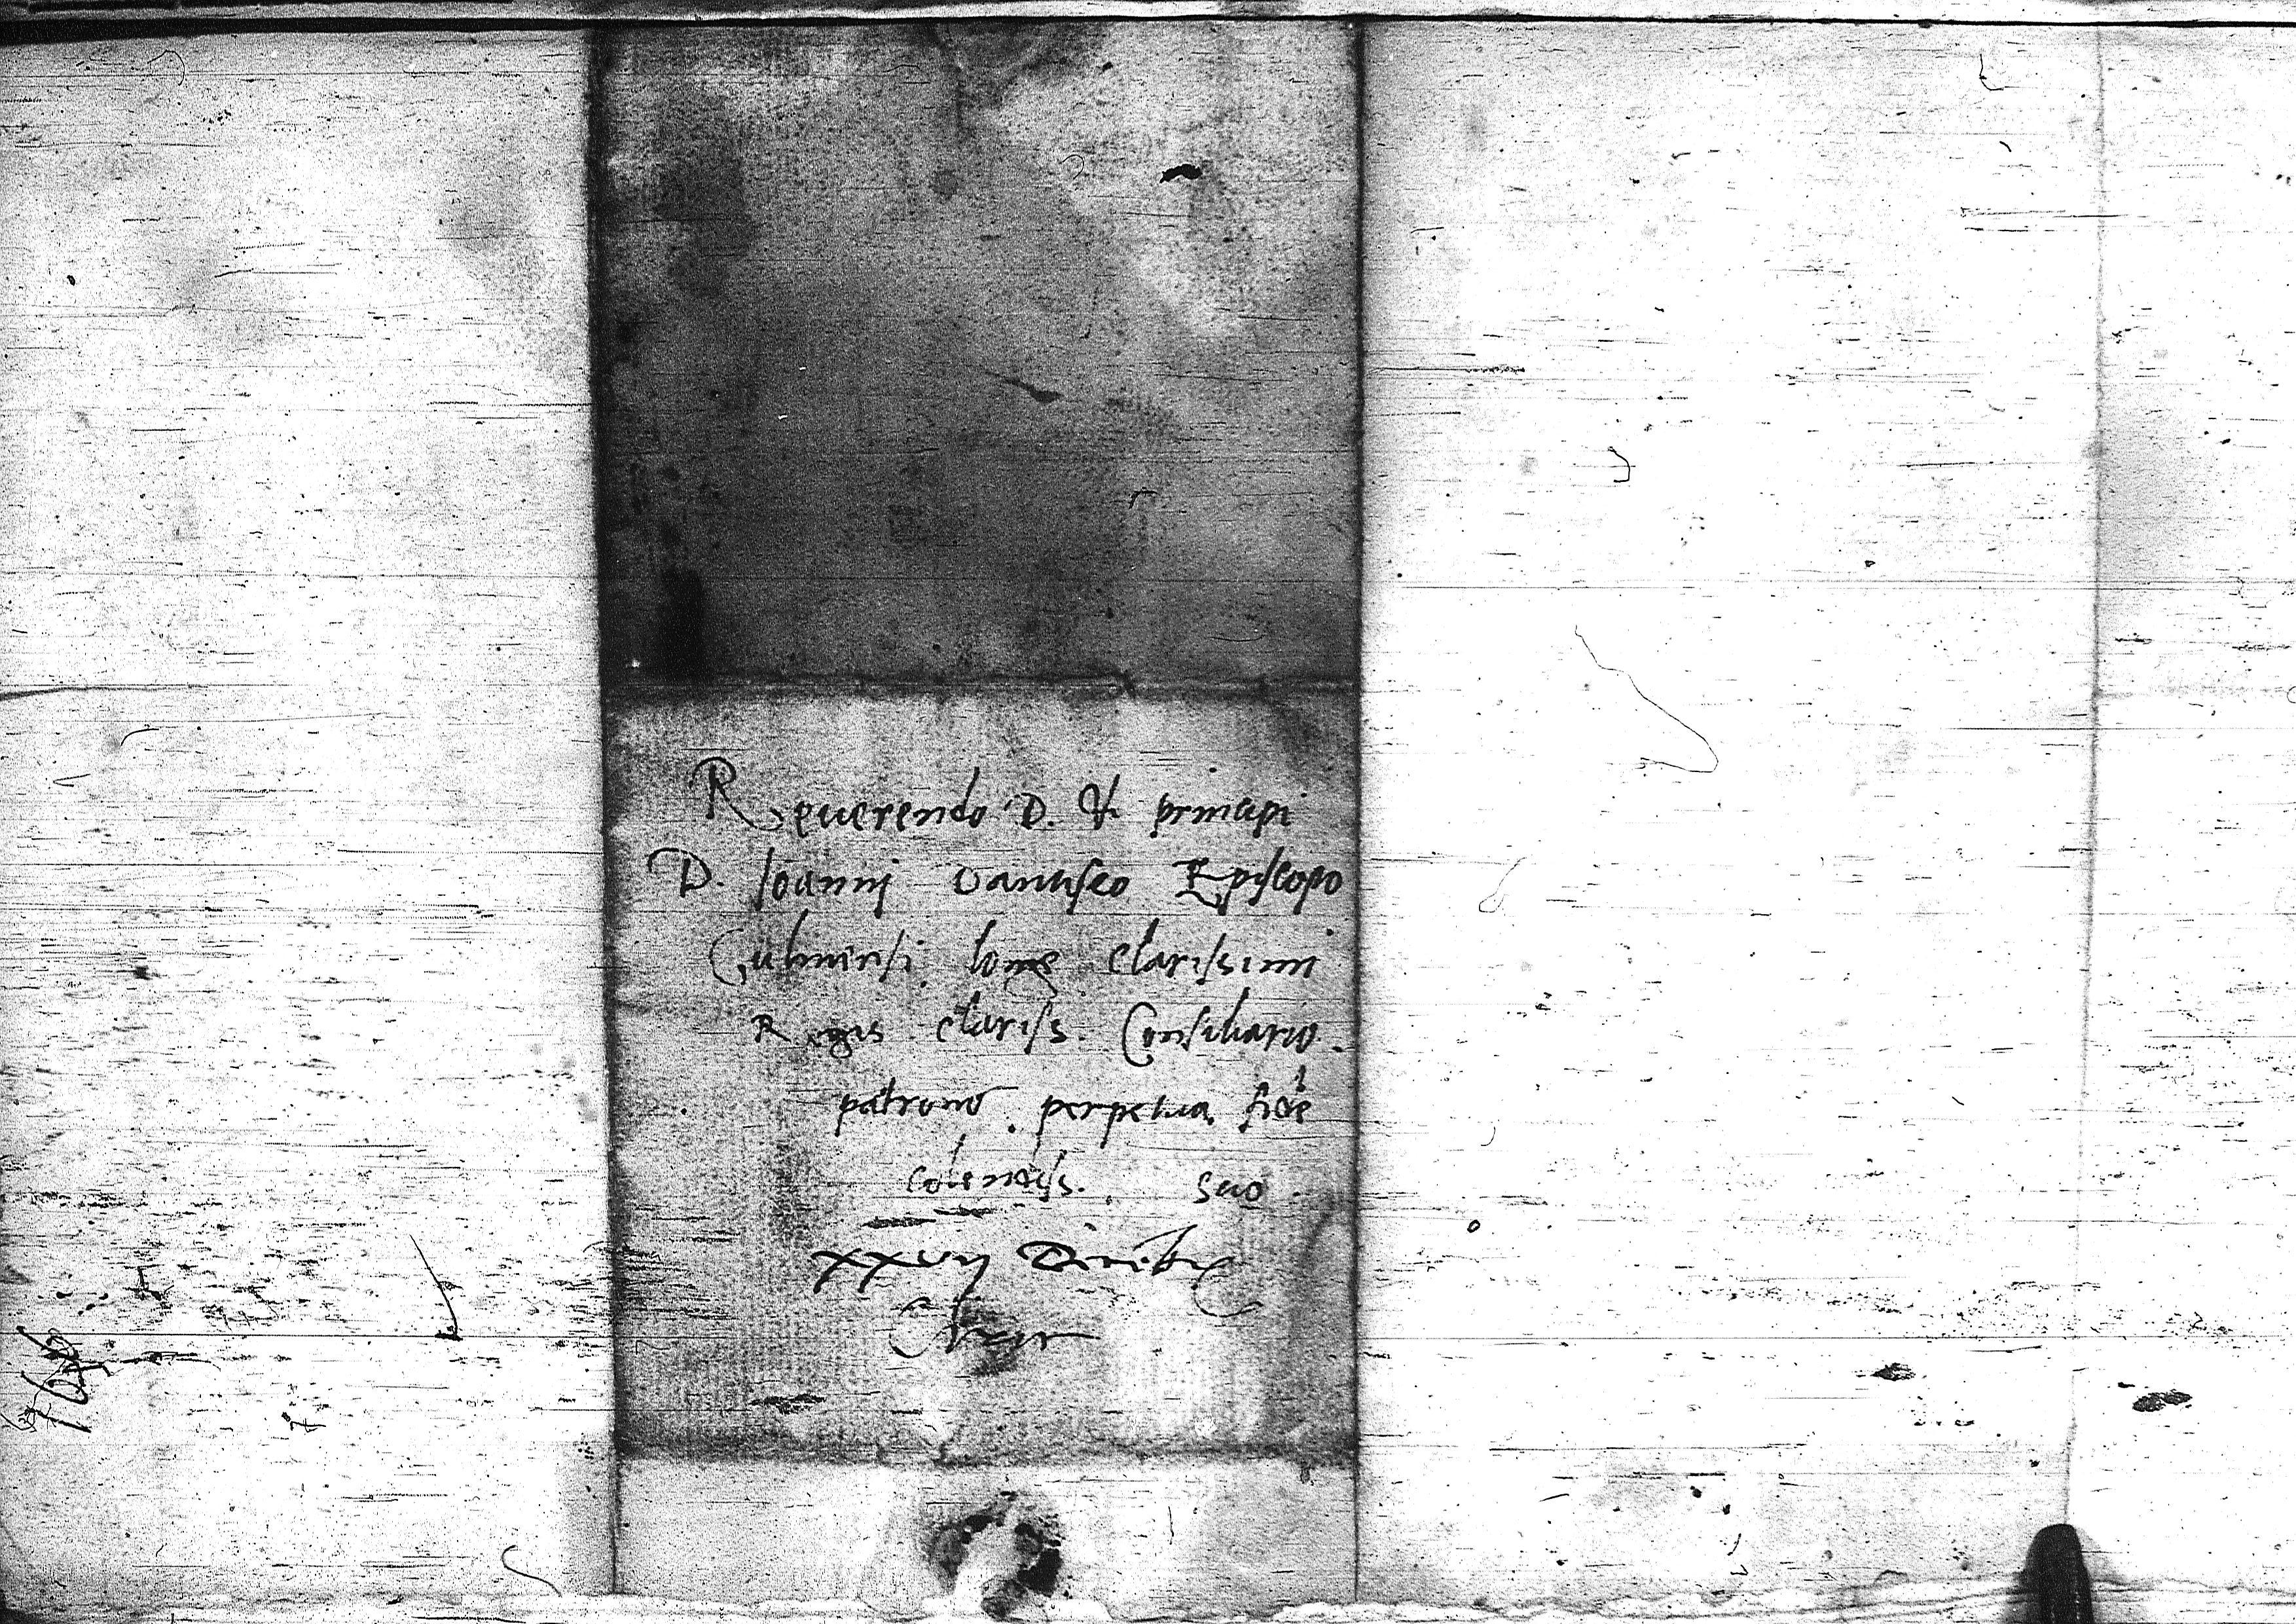 Reuerendo D. & principi
D. Ioannj Dantisco Episcopo
Culmensi longe clarissimi
Regis clariss. Consiliario.
patrono perpetua fide
colendiss. suo.
XXVIJ